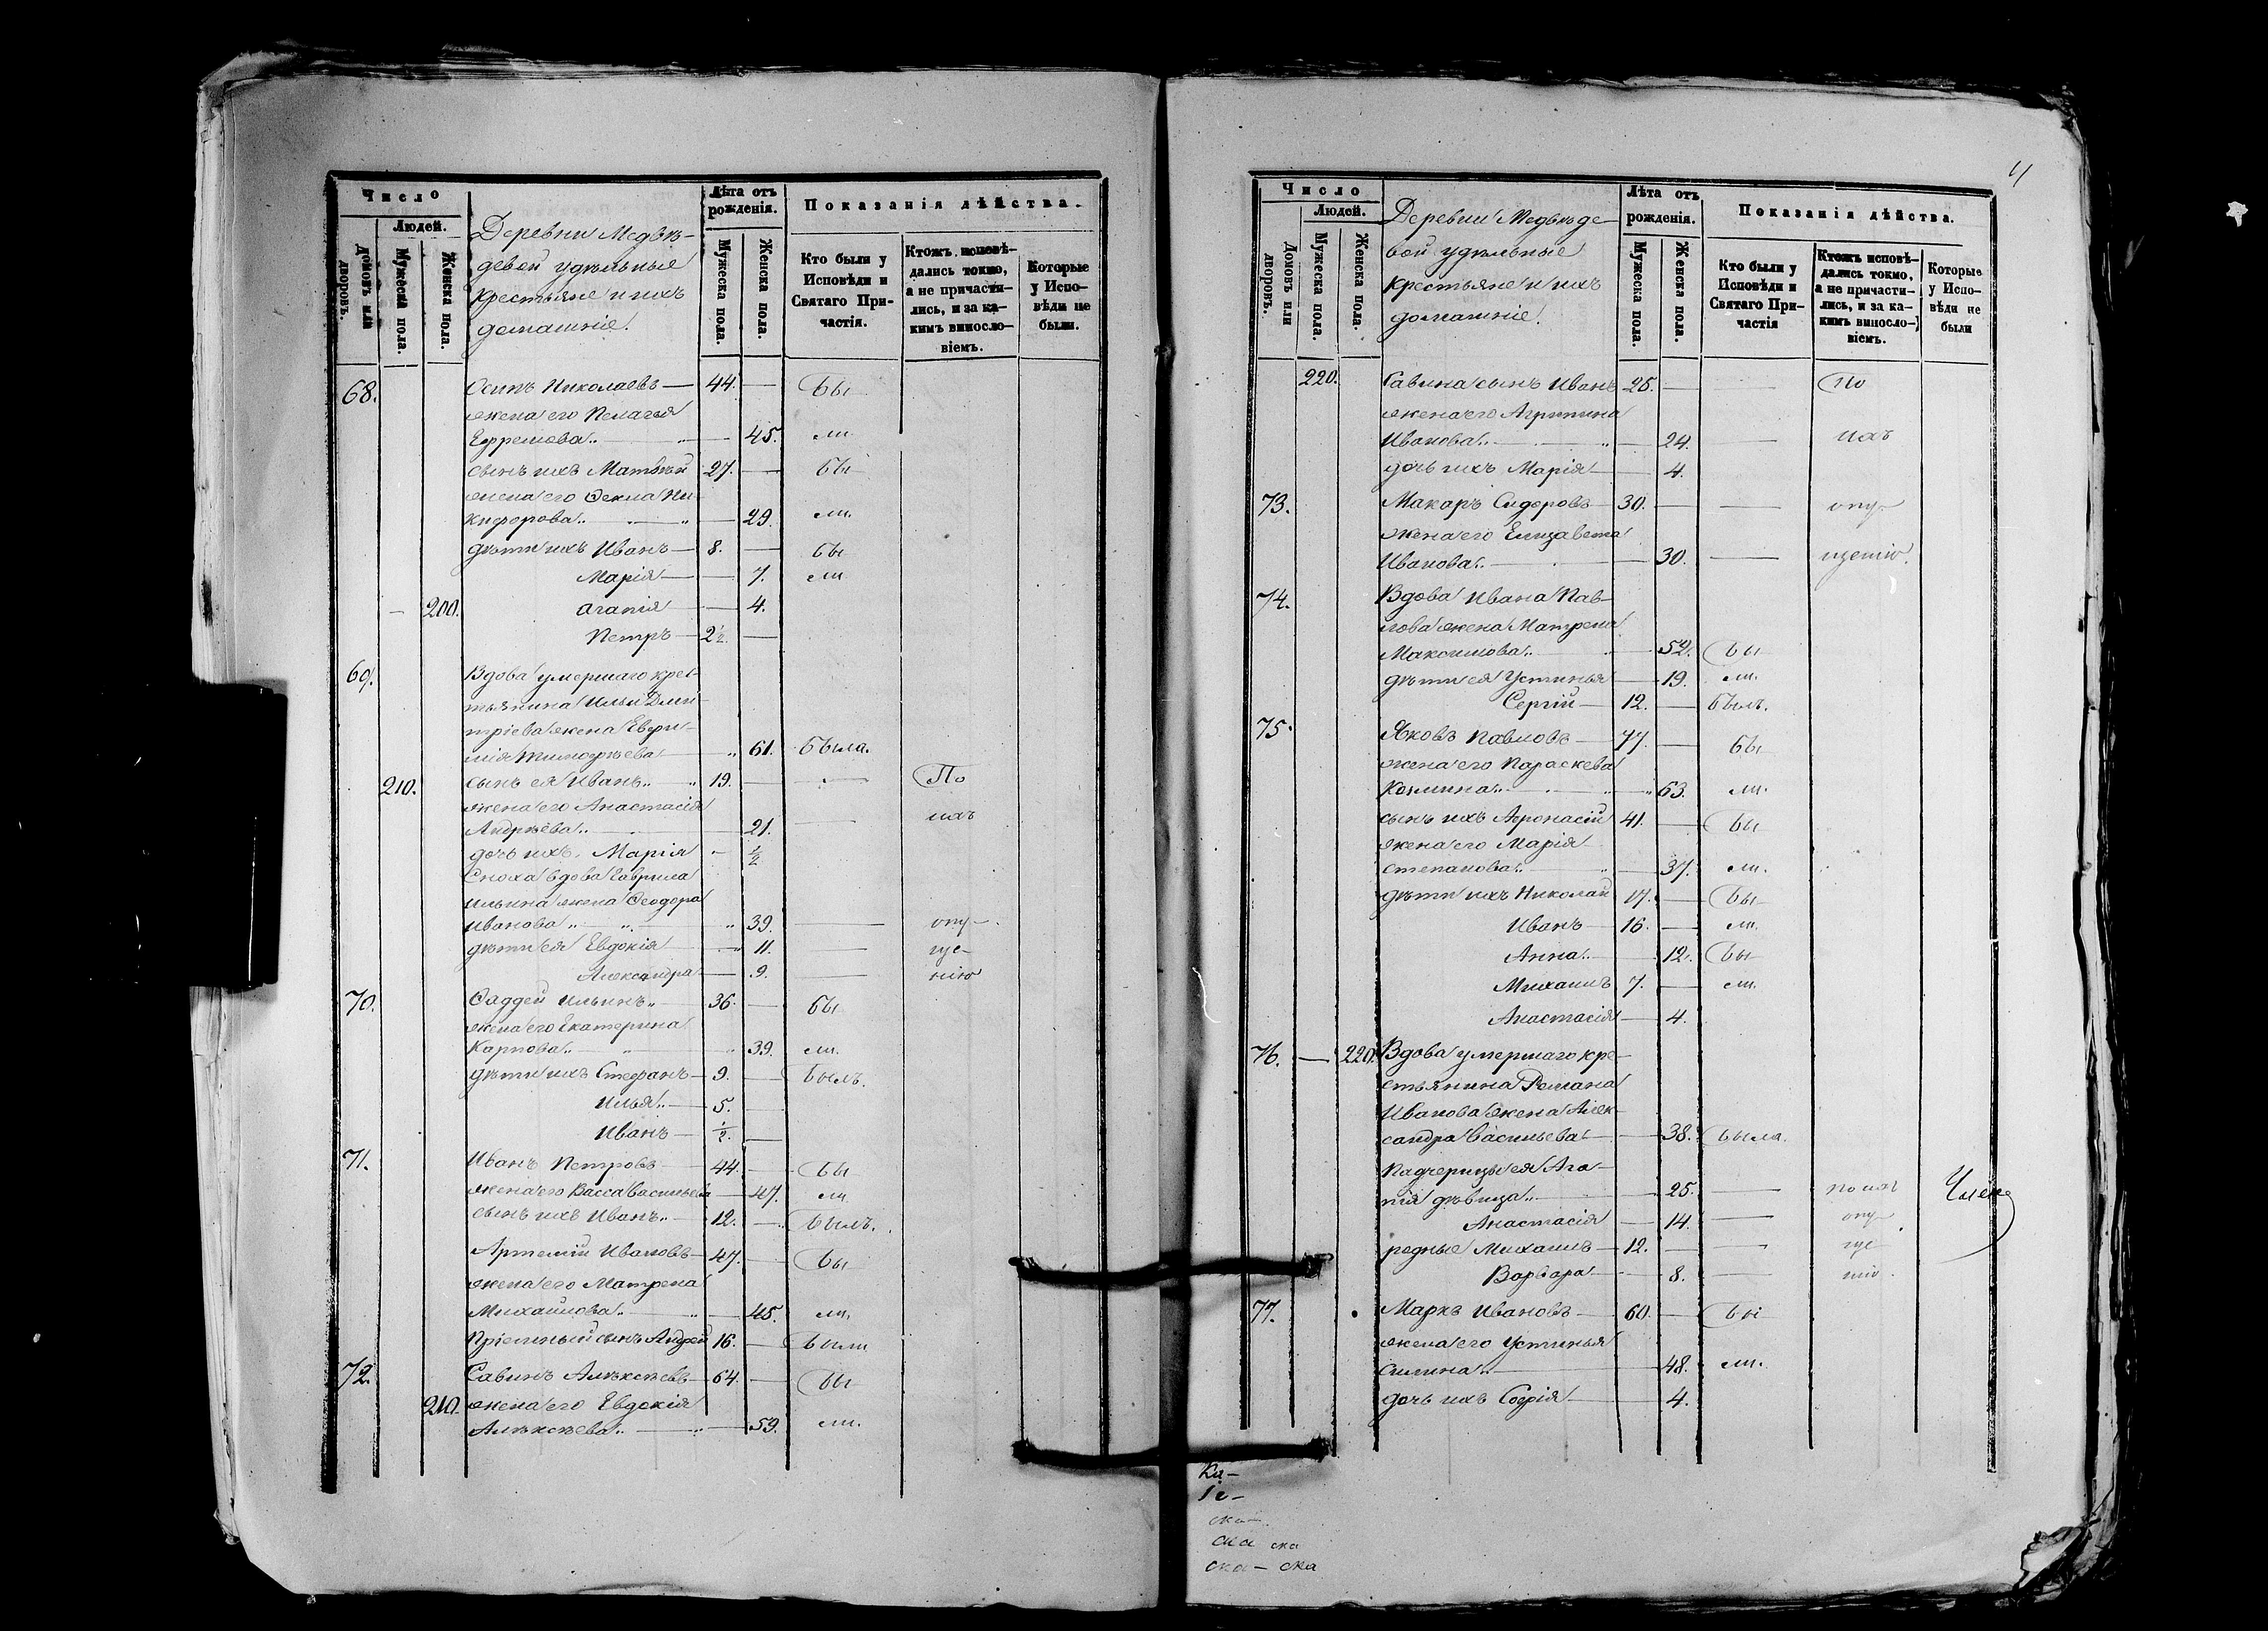 Число
Людей.
Домовъ или дворовъ.
Мужеска пола.
Женска пола.
Деревни Медвѣ-
девой удѣльные
крестьяне и ихъ
домашніе.
Лѣта отъ
рожденія.
Мужеска пола.
Женска пола.
Показанія дѣйства.
Кто были у
Исповѣди и
Святаго При-
частія.
Ктожъ исповѣ-
дались токмо,
а не причасти-
лись, и за ка-
кимъ винosло-
віемъ.
Которые
у Испо-
вѣди не
были.
68. Осипъ Николаевъ 44. Бы
жена его Пелагья
Ефремова 45. ли
сынъ ихъ Матвѣй 27. бы
жена его Фекла Ни-
кифорова 29. ли.
дѣти ихъ Иванъ 8. бы
Марія 7. ли
200. Агапія 4.
Петръ 2 1/2
69. Вдова умершаго крес-
тьянина Ильи Дми-
тріева жена Евфи-
мія Тимофѣева 61. была.
210. сынъ ея Иванъ 19. По
жена его Анастасія
Андрѣева 21. мах
дочь ихъ Марія 1/2
Сноха вдова Гаврила
Ильина жена Феодора
Иванова 39. опу-
дѣти ея Евдокія 11. ще-
Александра 9. нію
70. Фаддей Ильинъ 36. бы
жена его Екатерина
Карпова 39. ли.
дѣти ихъ Стефанъ 9. былъ.
Илья 5.
Иванъ 1/2
71. Иванъ Петровъ 44. бы
жена его Васса Васильева 47. ли
сынъ ихъ Иванъ 12. былъ.
Артемій Ивановъ 47. бы
жена его Матрена
Михайлова 45. ли.
Пріемный сынъ Андрей 16. были
72. Савинъ Алѣксѣевъ 64. бы
210. жена его Евдокія
Алѣксѣева 59. ли.
4
Число
Людей.
Домовъ или дворовъ.
Мужеска пола.
Женска пола.
Деревни Медвѣде-
вой удѣльные
крестьяне и ихъ
домашніе.
Лѣта отъ
рожденія.
Мужеска пола.
Женска пола.
Показанія дѣйства.
Кто были у
Исповѣди и
Святаго При-
частія
Ктожъ исповѣ-
дались токмо,
а не причасти-
лись, и за ка-
кимъ винosло-
віемъ.
Которые
у Испо-
вѣди не
были
220. Савина сынъ Иванъ 25. По
жена его Агрипина
Иванова 24. мах
дочь ихъ Марія 4.
73. Макаръ Сидоровъ 30. опу-
жена его Елизавета
Иванова 30. щенію.
74. Вдова Ивана Пав-
лова жена Матрена
Максимова 52. бы
дѣти ея Устинья 19. ли.
Сергій 12. былъ.
75. Яковъ Павловъ 77. бы
жена его Параскева
Козмина 63. ли.
сынъ ихъ Афонасій 41. бы
жена его Марія
Степанова 37. ли.
дѣти ихъ Николай 17. бы
Иванъ 16. ли.
Анна 12. бы
Михаилъ 7. ли.
Анастасія 4.
76. 220. Вдова умершаго кре-
стьянина Романа
Иванова жена Алек-
сандра Васильева 38. была.
Падчерицы ея Ага-
пія дѣвица 25. по мал
Анастасія 14. опу-
родные Михаилъ 12. ще
Варвара 8. нію.
77. Маркъ Ивановъ 60. бы
жена его Устинья
Силина 48. ли.
дочь ихъ Софія 4.
Ка-
ска
ска ска
ска - ска